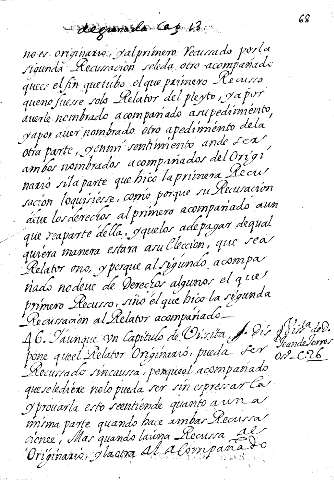 68
de quenta Cap 13.
no es originario, y al primero recusado por la
segunda Recusacion se le da otro acompañado
que es el fin que tubo el que primero Recuso
que no fuesse solo Relator del pleyto, ya por
averle nombrado acompañado a su pedimiento,
y a por aver nombrado otro a pedimiento de la
otra parte, y en mi sentimiento an de ser
ambos nombrados acompañados del Origi
nario si la parte que hiço la primera Recu
sacion lo quisiesse, como porque su Recusacion
que los derechos al primero acompañado aun
que no a parte della, y que los a de pagar de qual
quiera manera estara a su Eleccion, que sea
Relator o no, y porque al segundo acompa
ñado no deve de Derechos algunos el que
primero Recuso, sino el que hiço la segunda
Recusacion al Relator acompañado
46. Y aunque un Capitulo de Visita, dis
pone que el Relator Originario, pueda ser
Recusado sin causa, pero que el acompañado
que se le diere no lo pueda ser sin espresar la
y provarla esto se entiende quanto a un a
misma parte quando hace ambas Recussa
ciones, Mas quando la una Recussa al
Originario, y la otra al Acompañado
Visita de D.
Juan de Torres
Os. C. 26